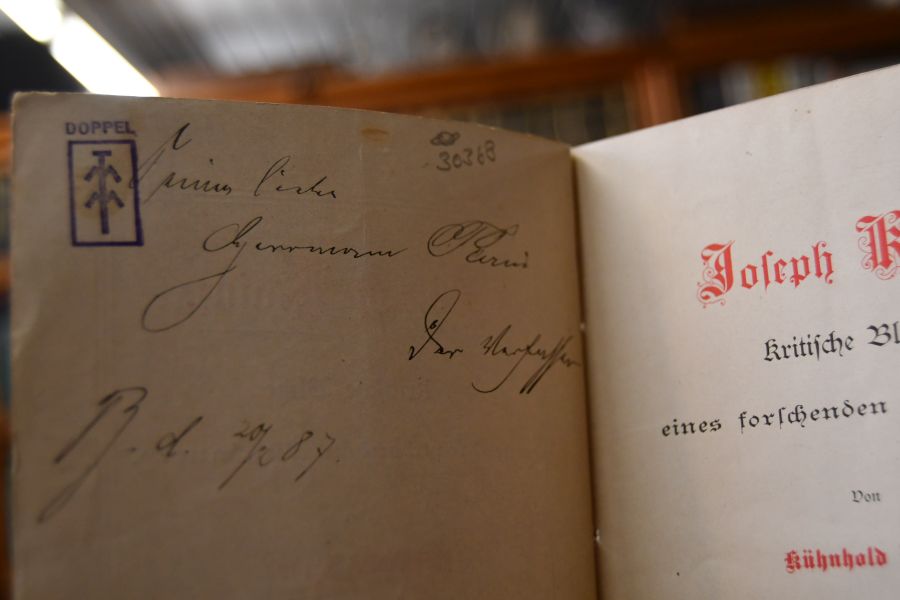 DOPPEL
30368
Seinem lieben
Herrmann
Der Verfasser
B. d. 20/2 87.
Joseph K
Kritische Bl
eines forschenden
Von
Kühnhold